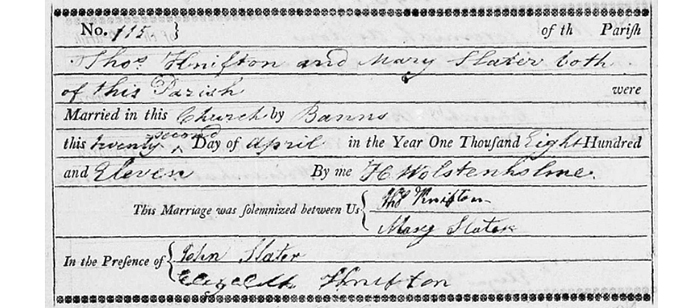 No. 115 } of th Parish
Thos. Knifton and Mary Slater both
of this Parish were
Married in this Church by Banns
this twenty second Day of April in the Year One Thousand Eight Hundred
and Eleven By me H Wolstenholme.
This Marriage was solemnized between Us { Thos Knifton
Mary Slater
In the Presence of { John Slater
Elizabeth Knifton